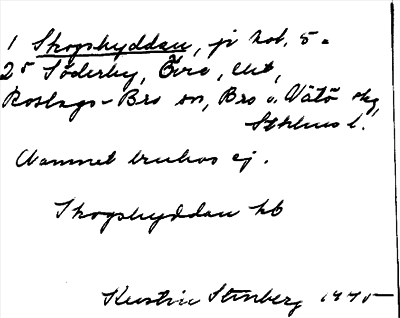 1 Skogshyddan, på kob. 5 =
2⁵ Söderby, Övre, Ek,
Roslags-Bro sn, Bro o. Vätö skg,
Sthlms l.
Namnet brukas ej.
Skogshyddan kb
Kerstin Stenberg 1945